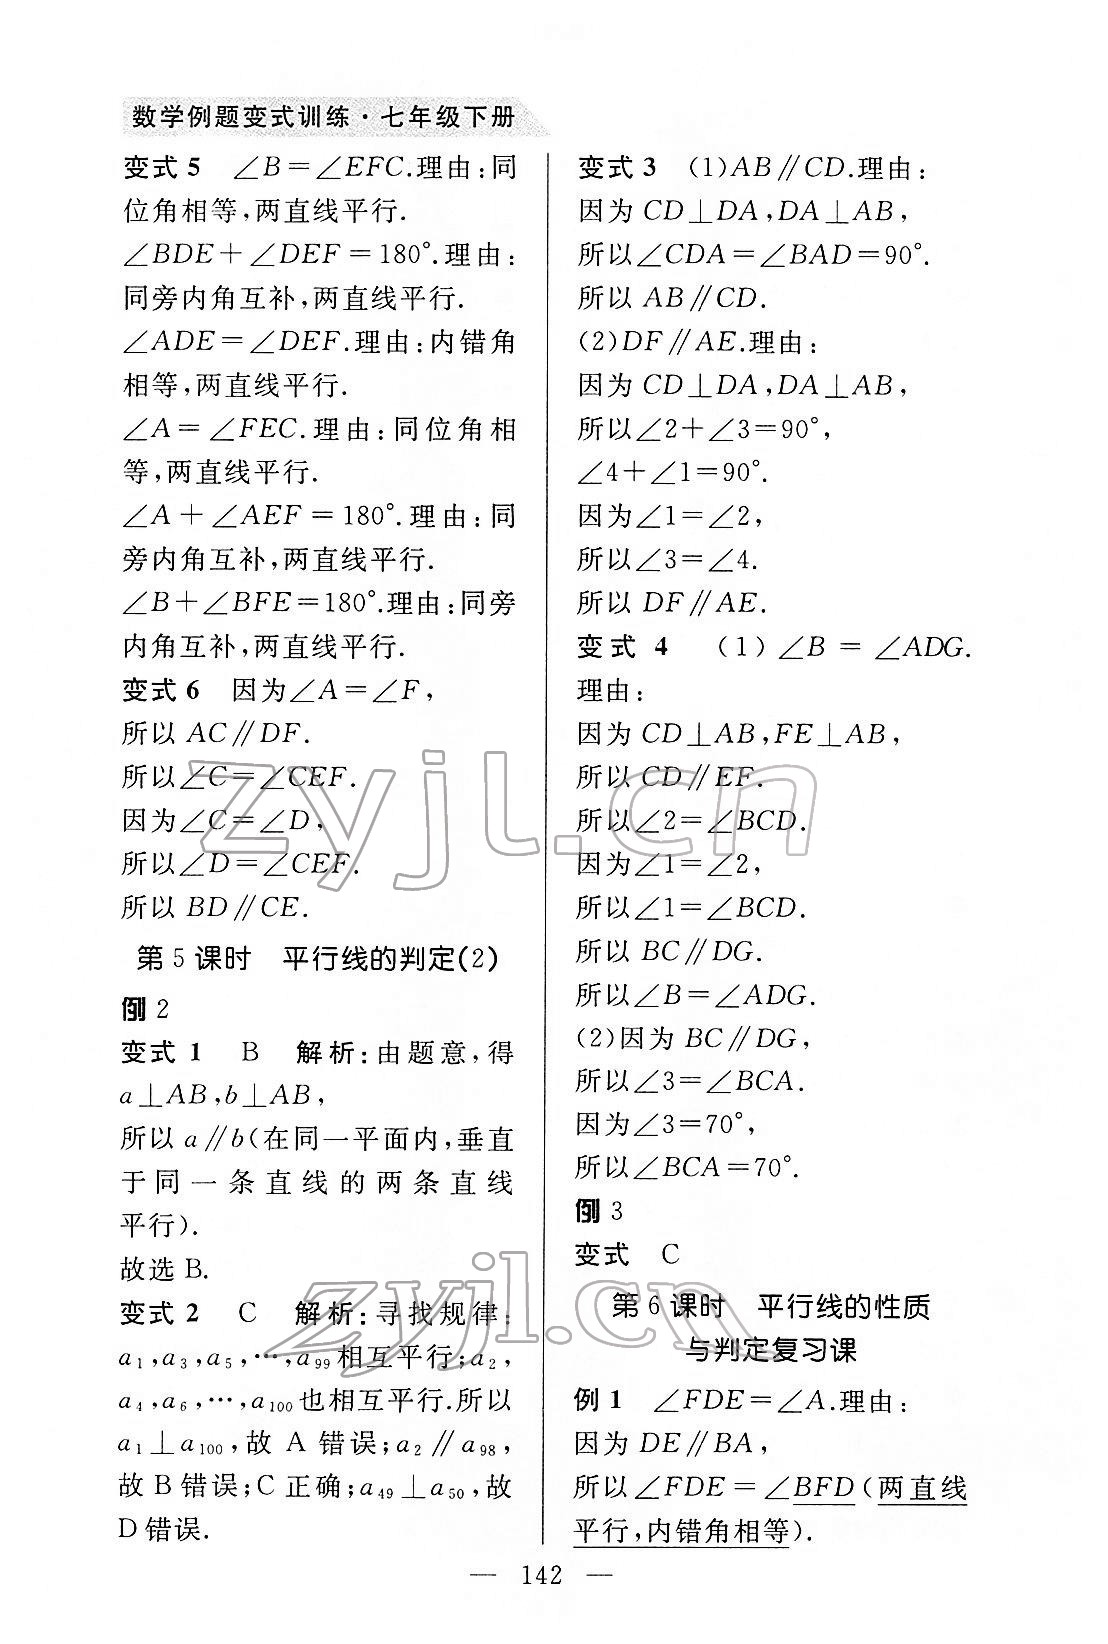 数学例题变式训练·七年级下册
变式 5 ∠B=∠EFC.理由:同
位角相等,两直线平行.
∠BDE+∠DEF=180°.理由:
同旁内角互补,两直线平行.
∠ADE=∠DEF.理由:内错角
相等,两直线平行.
∠A=∠FEC.理由:同位角相
等,两直线平行.
∠A+∠AEF=180°.理由:同
旁内角互补,两直线平行.
∠B+∠BFE=180°.理由:同旁
内角互补,两直线平行.
变式 6 因为∠A=∠F,
所以 AC∥DF.
所以∠C=∠CEF.
因为∠C=∠D,
所以∠D=∠CEF.
所以 BD∥CE.
第 5 课时 平行线的判定(2)
例 2
变式 1 B 解析:由题意,得
a⊥AB,b⊥AB,
所以 a∥b(在同一平面内,垂直
于同一条直线的两条直线
平行).
故选 B.
变式 2 C 解析:寻找规律:
a₁,a₃,a₅,…,a₉₉相互平行;a₂,
a₄,a₆,…,a₁₀₀也相互平行.所以
a₁⊥a₁₀₀,故 A 错误;a₂∥a₉₈,
故 B 错误;C 正确;a₄₉⊥a₅₀,故
D 错误.
变式 3 (1)AB∥CD.理由:
因为 CD⊥DA,DA⊥AB,
所以∠CDA=∠BAD=90°.
所以 AB∥CD.
(2)DF∥AE.理由:
因为 CD⊥DA,DA⊥AB,
所以∠2+∠3=90°,
∠4+∠1=90°.
因为∠1=∠2,
所以∠3=∠4.
所以 DF∥AE.
变式 4 (1)∠B=∠ADG.
理由:
因为 CD⊥AB,FE⊥AB,
所以 CD∥EF.
所以∠2=∠BCD.
因为∠1=∠2,
所以∠1=∠BCD.
所以 BC∥DG.
所以∠B=∠ADG.
(2)因为 BC∥DG,
所以∠3=∠BCA.
因为∠3=70°,
所以∠BCA=70°.
例 3
变式 C
第 6 课时 平行线的性质
与判定复习课
例 1 ∠FDE=∠A.理由:
因为 DE∥BA,
所以∠FDE=∠BFD(两直线
平行,内错角相等).
— 142 —
zyjl.cn
zyjl.cn